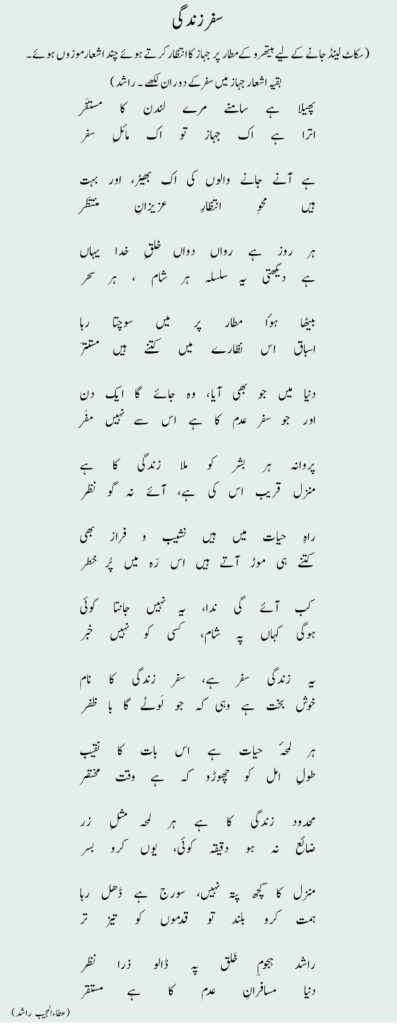 سفر زندگی
(سکاٹ لینڈ جانے کے لیے ہیتھرو کے مطار پر جہاز کا انتظار کرتے ہوئے چند اشعار موزوں ہوئے۔
بقیہ اشعار جہاز میں سفر کے دوران لکھے۔ راشد)
پھیلا ہے سامنے مرے لندن کا مستقَر
اترا ہے اک جہاز تو اک مائلِ سفر
ہے آنے جانے والوں کی اک بھیڑ، اور بہت
ہیں محوِ انتظارِ عزیزانِ منتظَر
ہر روز ہے رواں دواں خلقِ خدا یہاں
ہے دیکھتی یہ سلسلہ ہر شام ، ہر سحر
بیٹھا ہوٴا مطار پر میں سوچتا رہا
اسباق اس نظارے میں کتنے ہیں مستتر
دنیا میں جو بھی آیا، وہ جائے گا ایک دن
اور جو سفر عدم کا ہے اس سے نہیں مفَر
پروانہ ہر بشر کو ملا زندگی کا ہے
منزل قریب اس کی ہے، آئے نہ گو نظر
راہِ حیات میں ہیں نشیب و فراز بھی
کتنے ہی موڑ آتے ہیں اس رَہ میں پُر خطر
کب آئے گی ندا، یہ نہیں جانتا کوئی
ہوگی کہاں پہ شام، کسی کو نہیں خبر
یہ زندگی سفر ہے، سفر زندگی کا نام
خوش بخت ہے وہی کہ جو لَوٹے گا با ظفر
ہر لمحۂ حیات ہے اس بات کا نقیب
طولِ امل کو چھوڑو کہ ہے وقت مختصر
محدود زندگی کا ہے ہر لمحہ مثلِ زر
ضائع نہ ہو دقیقہ کوئی، یوں کرو بسر
منزل کا کچھ پتہ نہیں، سورج ہے ڈھل رہا
ہمت کرو بلند تو قدموں کو تیز تر
راشد ہجومِ خَلق پہ ڈالو ذرا نظر
دنیا مسافرانِ عدم کا ہے مستقر
(عطاءالمجیب راشد)